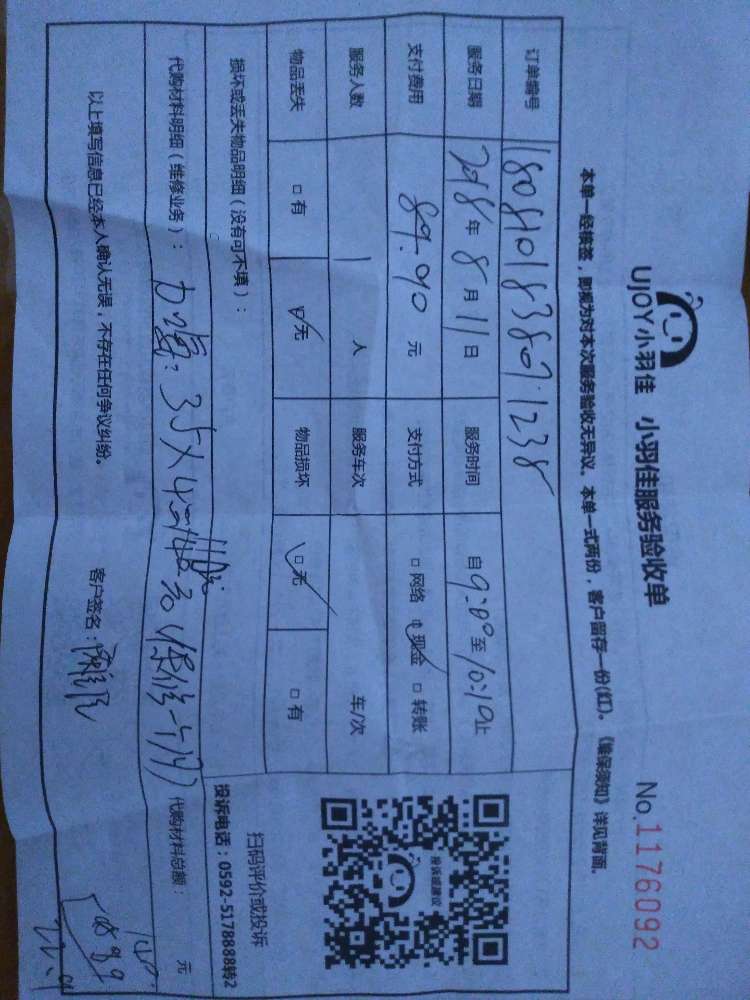 UJOY小羽佳 小羽佳服务验收单
No.1176092
本单一经接签，即视为对本次服务验收无异议。本单一式两份，客户留存一份(红)。《维保须知》详见背面。
订单编号
服务日期 2018年8月11日 服务时间 自9:00至10:10止
支付费用 89.90元 支付方式 □网络 □现金 □转账
服务人数 1人 服务车次 车/次
物品丢失 □有 □无 物品损坏 □无 □有
损坏或丢失物品明细（没有可不填）：
代购材料明细（维修业务）： 35×4 代购材料总额： 元
以上填写信息已经本人确认无误，不存在任何争议纠纷。 客户签名：
投诉或建议
扫码评价或投诉
投诉电话：0592-5178888转2